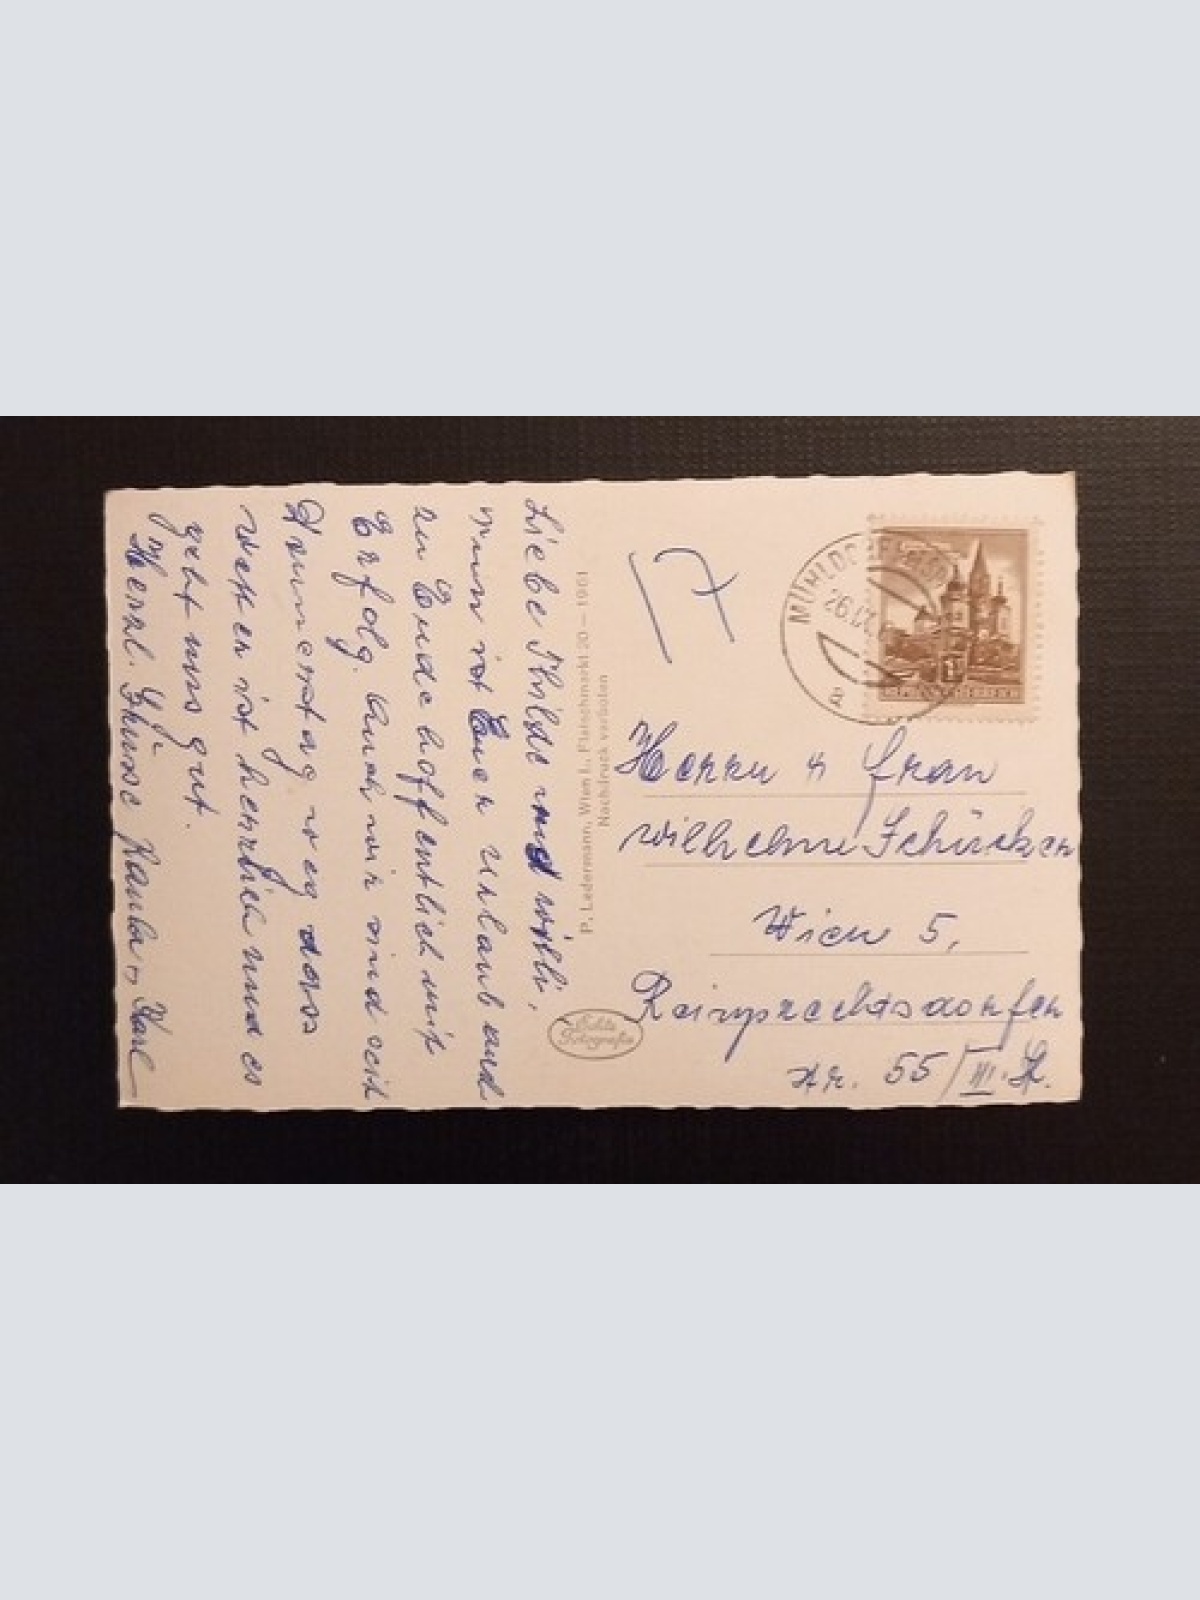 Liebe Thilde und Willi,
Nun ist Euer Urlaub auch
zu Ende hoffentlich mit
Erfolg. Auch wir sind seit
Donnerstag weg das
Wetter ist herrlich und es
geht uns gut.
Herzl. Grüsse Karl
P. Ledermann, Wien I., Fleischmarkt 20 – 1961
Nachdruck verboten
Echte
Fotografie
17
MÜHLDORF
26.IX.
a
REPUBLIK ÖSTERREICH
Herrn u Frau
Wilhelm Schücker
Wien 5,
Reinprechtsdorfer
Nr. 55/III. St.